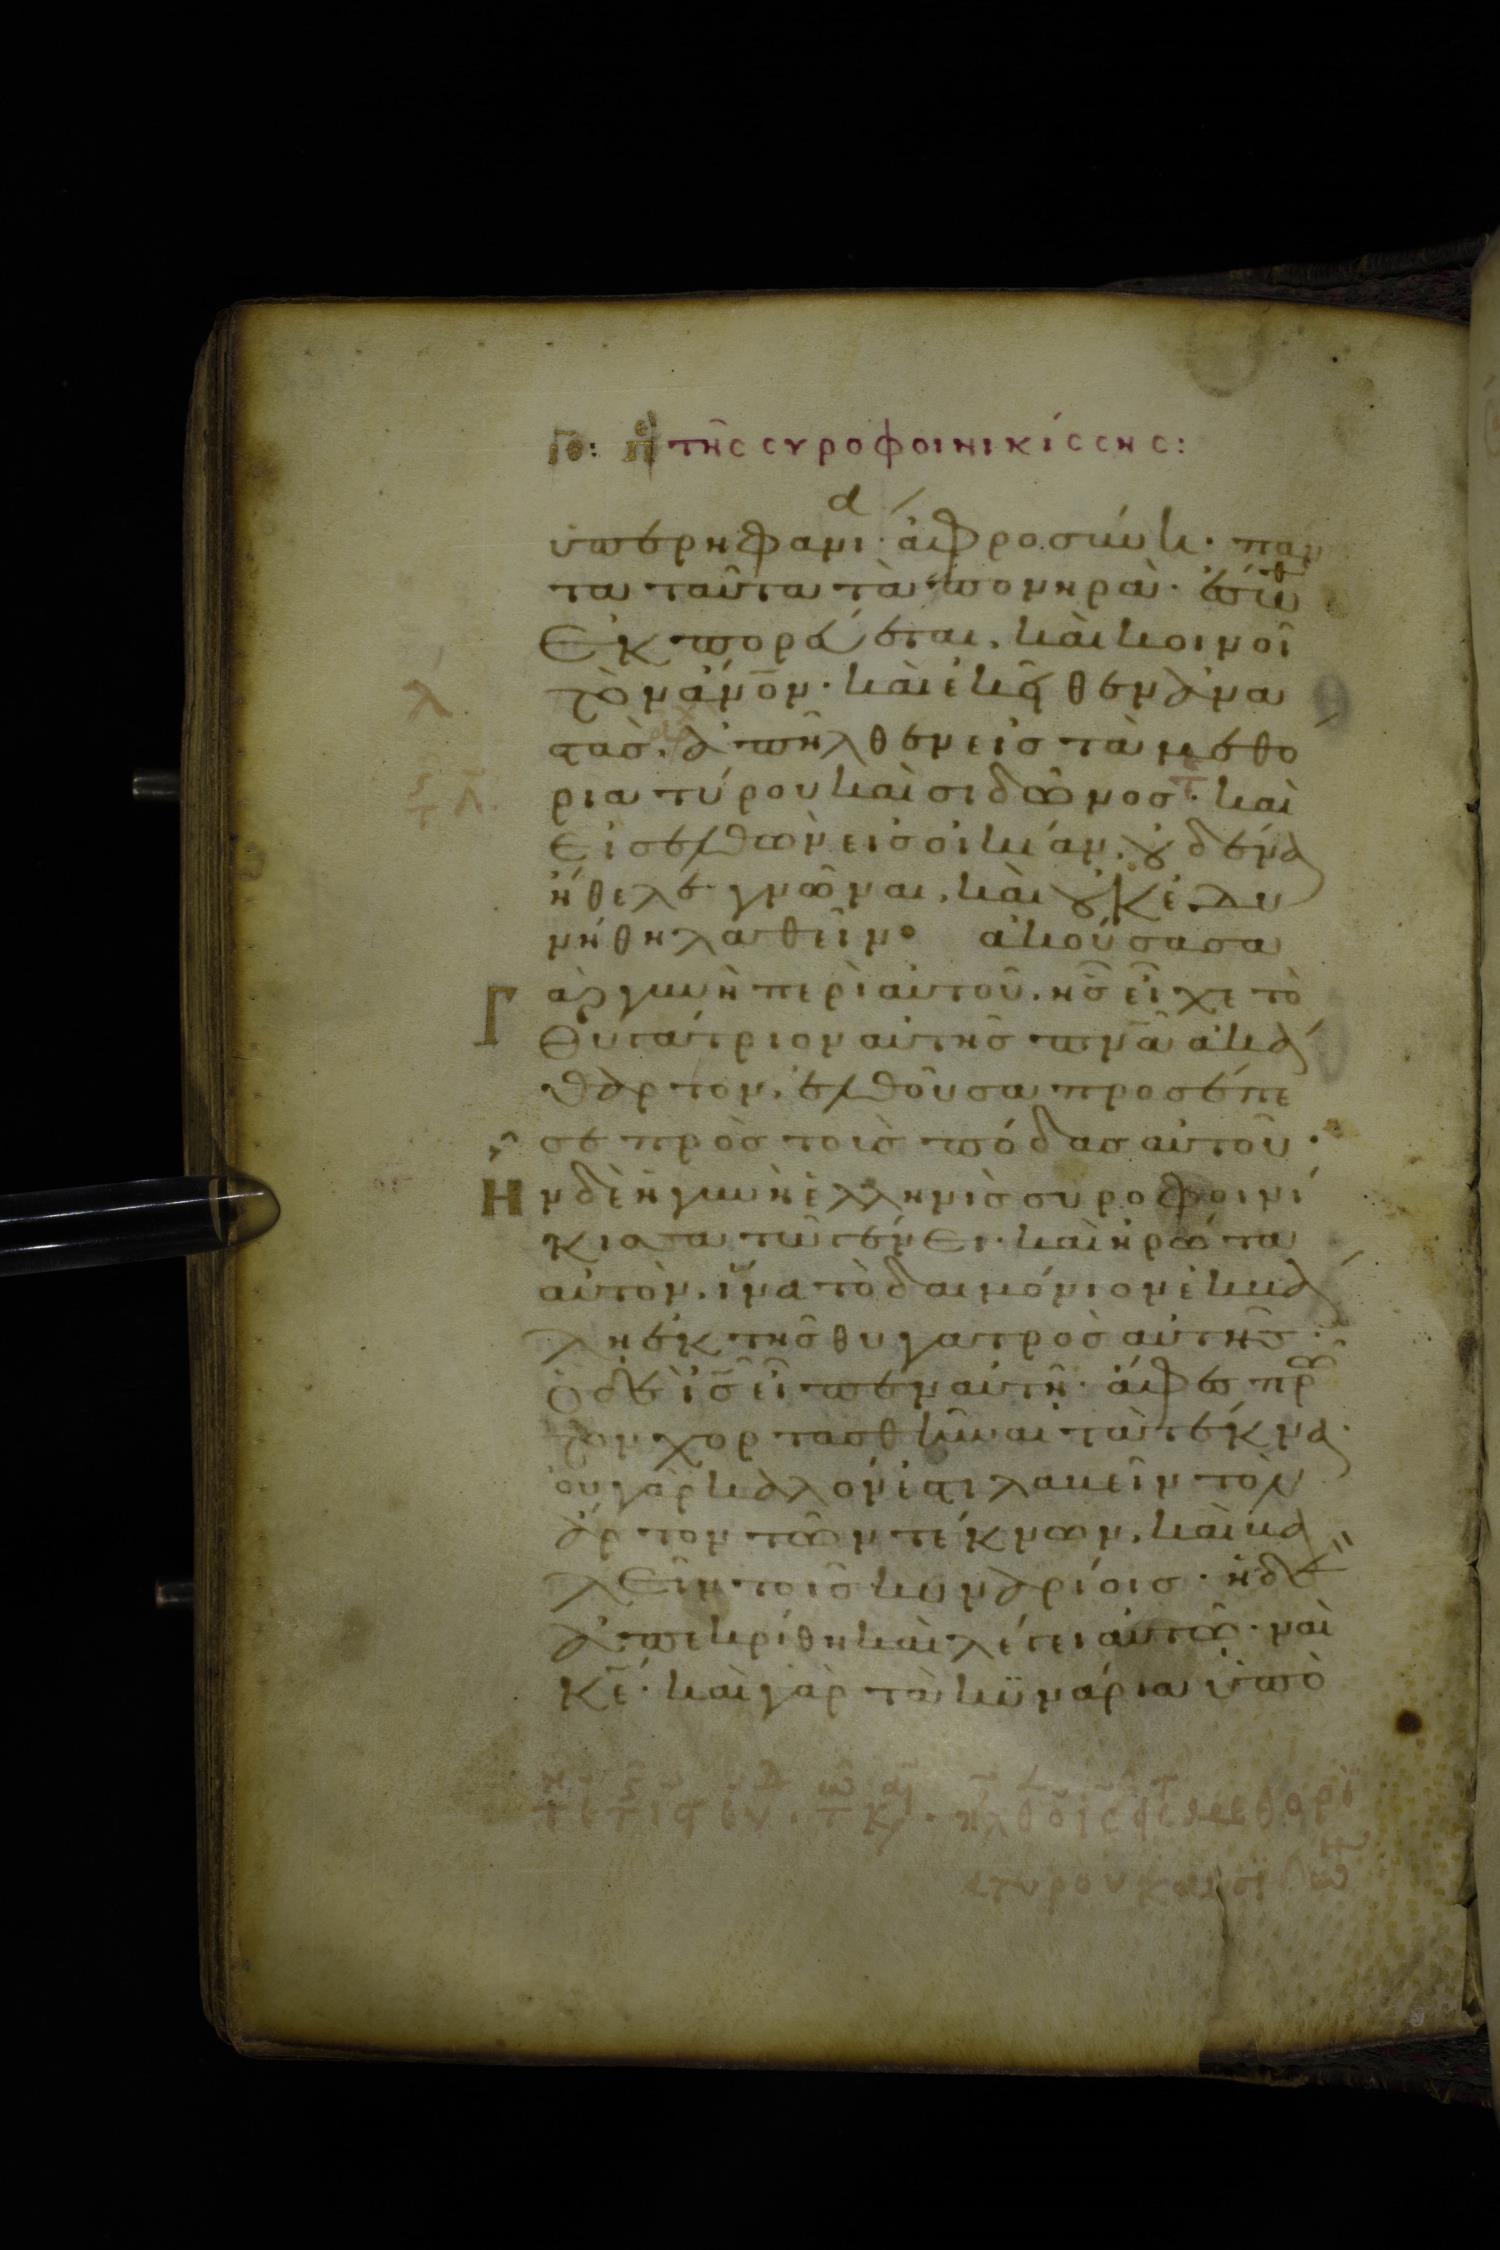 ιθ: πε τῆς συροφοινικίσσης:
ὑπερηφανι·ἀφροσύνη· παν
τα ταῦτα τὰ πονηρὰ· ἔσωθ
ἐκπορεύεται, καὶ κοινοῖ
τὸν ἄνον· καὶ ἐκεῖθεν ἀνα
στὰσ, ἀπῆλθεν εἰσ τὰ μεθό
ρια τύρου καὶ σιδῶνοσ· καὶ
εἰσελθὼν εἰσ οἰκίαν, οὐδένα
ἤθελε γνῶναι, καὶ οὐκ ἐδυ
νήθη λαθεῖν· ἀκούσασα
Γ
ὰρ γυνὴ περὶ αὐτοῦ, ἧσ εἶχε τὸ
θυγάτριον αὐτῆσ πνᾶ ἀκά
θαρτον, ἐλθοῦσα προσέπε
σε πρὸσ τοὺσ πόδασ αὐτοῦ·
Η
ν δὲ ἡ γυνὴ ἑλληνὶσ συροφοινί
κισσα τῶ γένει· καὶ ἠρώτα
αὐτὸν, ἵνα τὸ δαιμόνιον ἐκβά
λη ἐκ τῆσ θυγατρὸσ αὐτῆσ·
ὁ δὲ ἰσ εἶπεν αὐτῆ· ἄφεσ πρῶ
τον χορτασθῆναι τὰ τέκνα·
οὐ γὰρ καλόν ἐστι λαβεῖν τὸν
ἄρτον τῶν τέκνων, καὶ βα
λεῖν τοῖσ κυναρίοισ· ἡ δὲ
ἀπεκρίθη καὶ λέγει αὐτῶ· ναὶ
κε· καὶ γὰρ τὰ κυνάρια ὑπὸ
τ κ · ἦλθ ὁ ισ μεθόρι
τύρου και σιδῶ